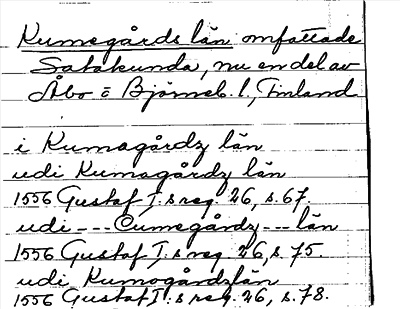 Kumegårds län omfattade
Satakunda, nu en del av
Åbo o Björneb. l, Finland
i Kumagårdz län
udi Kumagårdz län
1556 Gustaf I.s reg. 26, s.67.
udi --- Cumegårdz --- län
1556 Gustaf I.s reg. 26, s.75.
udi Kumogårdzlän
1556 Gustaf I.s reg. 26, s.78.